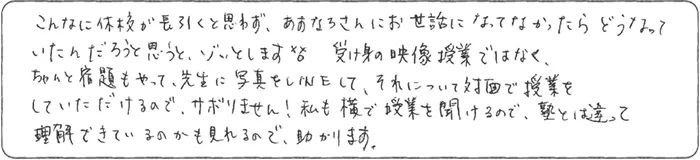 こんなに休校が長引くと思わず、あすなろさんにお世話になってなかったらどうなって
いたんだろうと思うと、ゾッとします💦 受け身の映像授業ではなく、
ちゃんと宿題もやって、先生に写真をLINEして、それについて対面で授業を
していただけるので、サボりません!私も横で授業を聞けるので、塾とは違って
理解できているのかも見れるので、助かります。